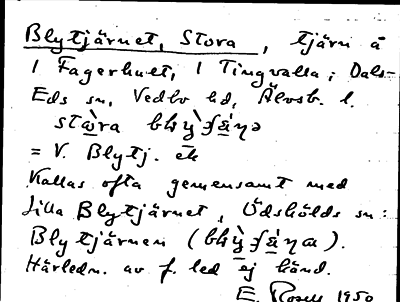 Blytjärnet, Stora, tjärn å
1 Fagerhult, 1 Tingvalla; Dals-
Eds sn, Vedbo hd, Älvsb. l.
= V. Blytj. ek
Kallas ofta gemensamt med
Lilla Blytjärnet, Ödskölds sn:
Blytjärnen
Härledn. av f. led ej känd.
E. 1950